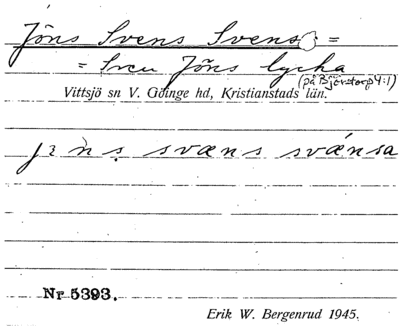 Jöns Svens Svens =
= Sven Jöns lycka
(på Bjönstorp 4:1)
Vittsjö sn V. Göinge hd, Kristianstads län.
svæns svánsa
Nr 5393.
Erik W. Bergenrud 1945.